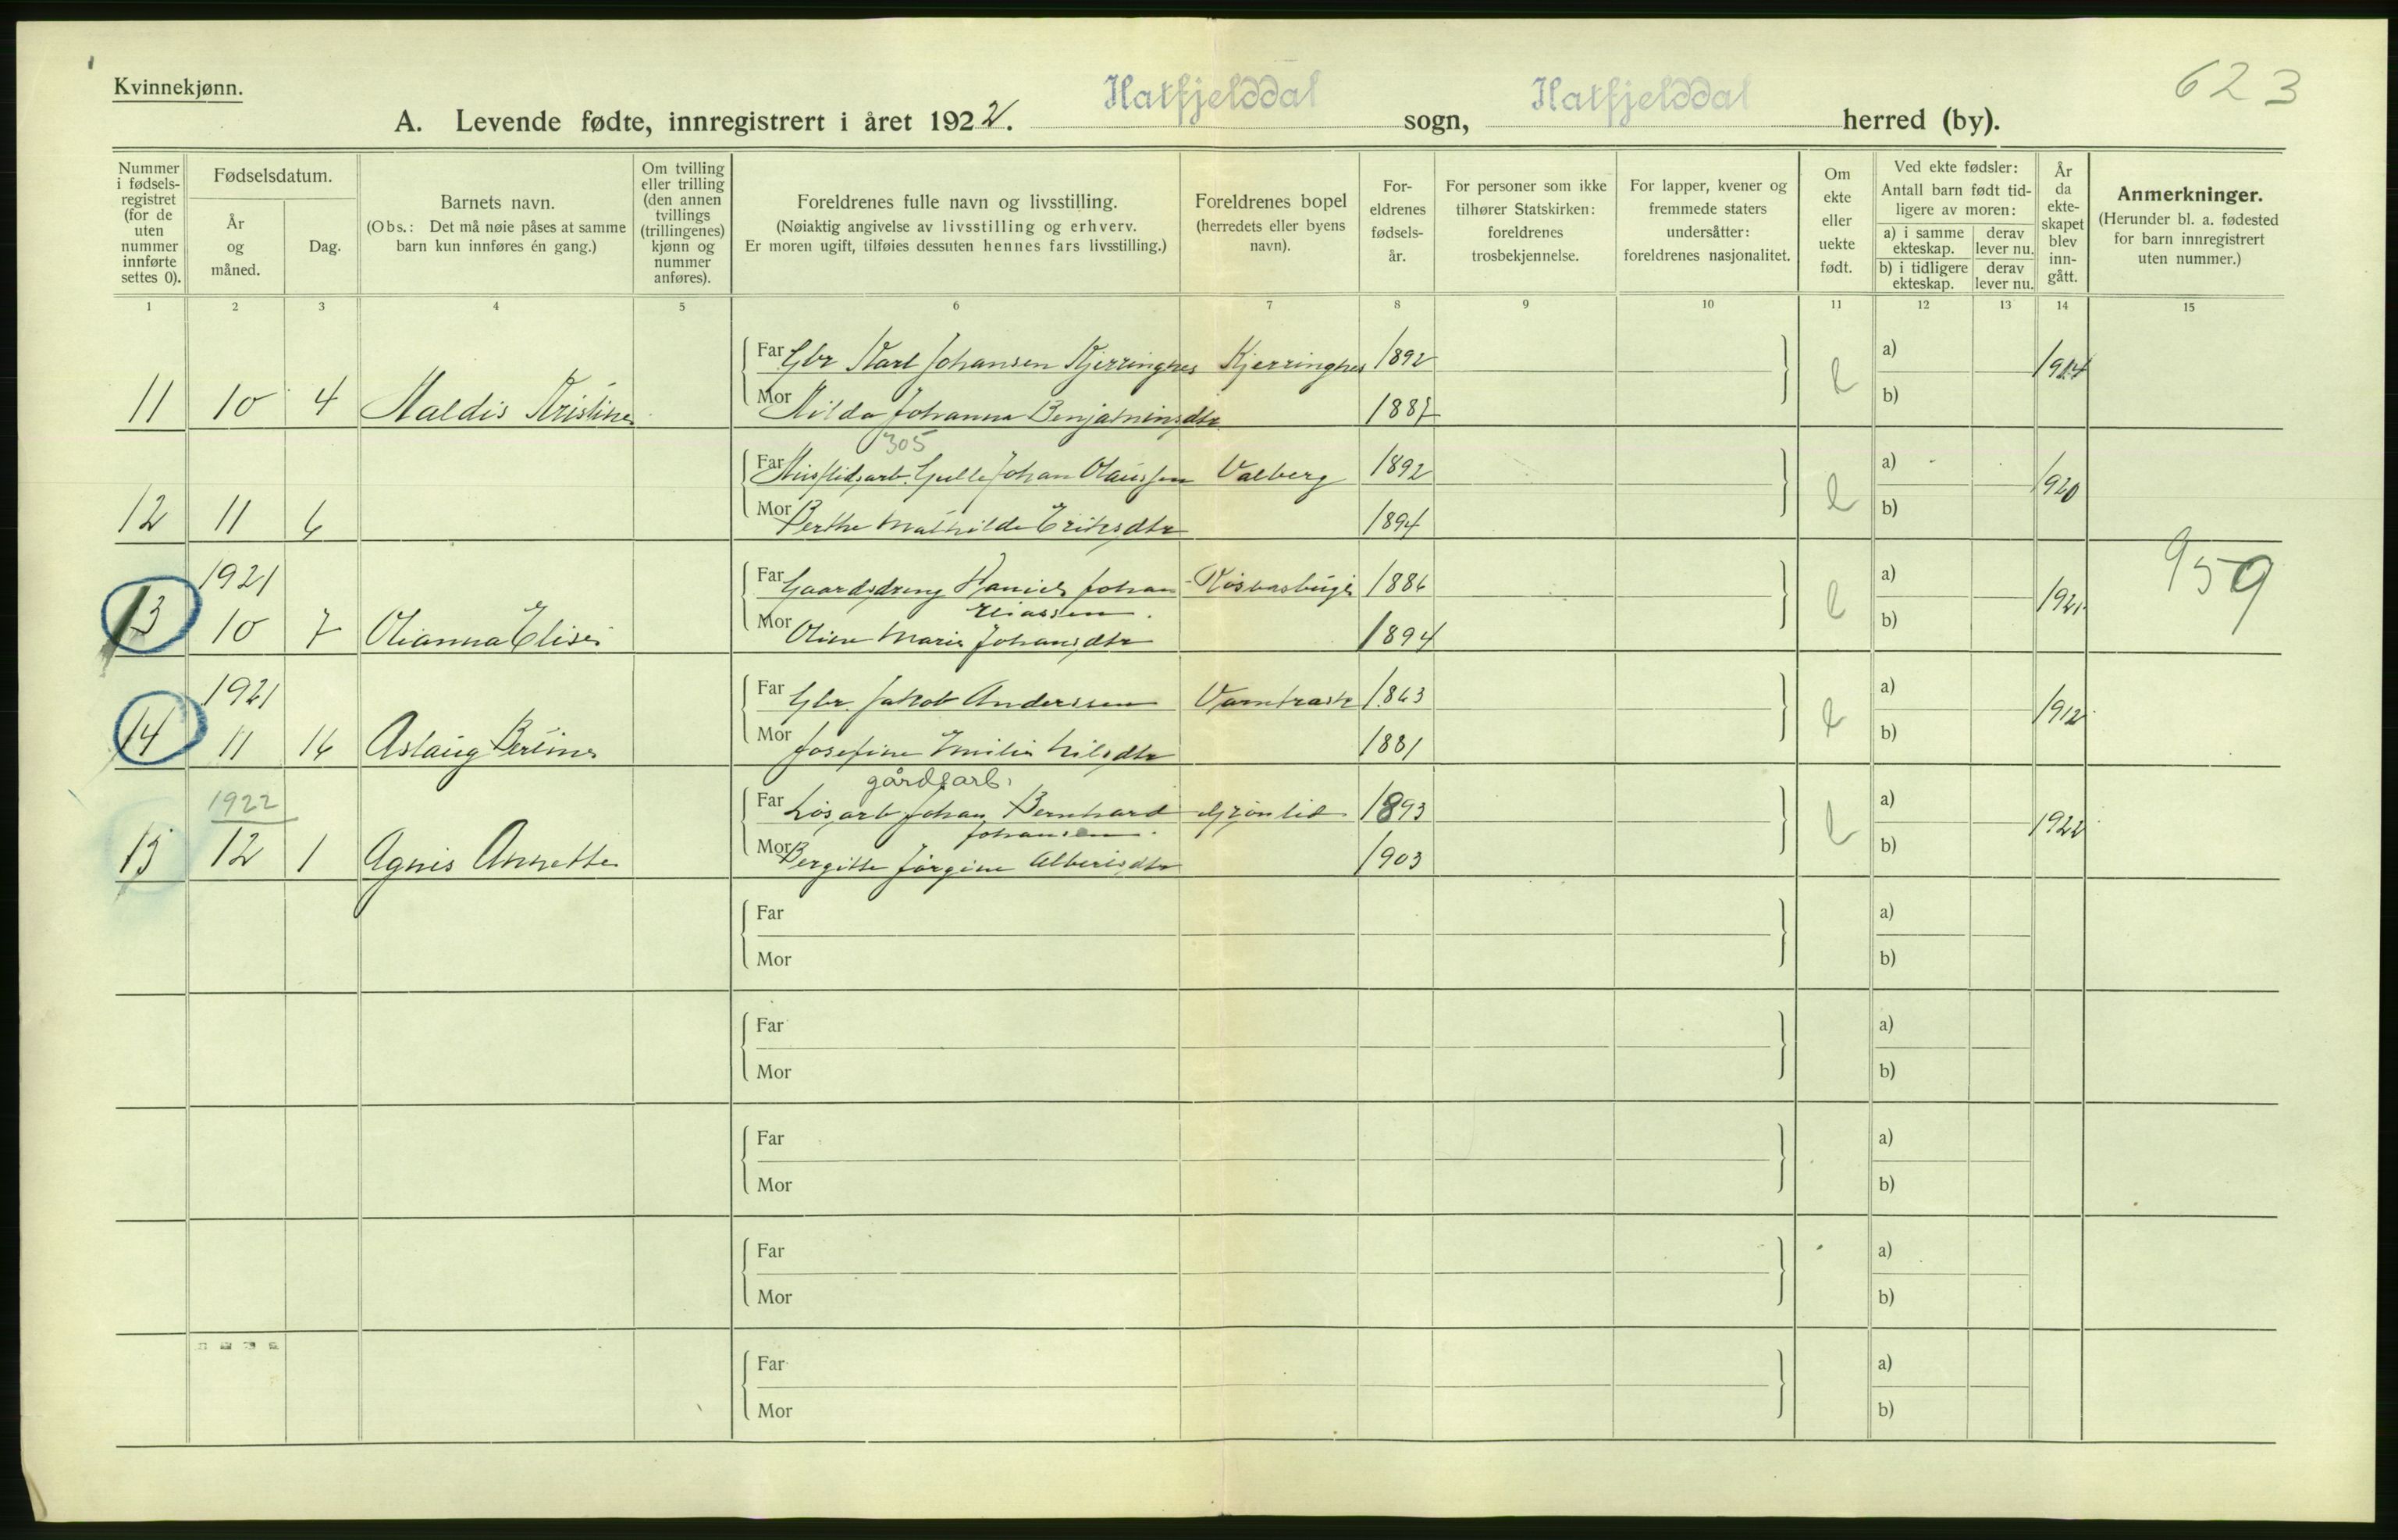 Kvinnekjønn.
623
A. Levende fødte, innregistrert i året 1922. Hatfjelddal sogn, Hatfjelddal herred (by).
Nummer i fødsels-registret (for de uten nummer innførte settes 0).
Fødselsdatum.
År og måned.
Dag.
Barnets navn.
(Obs.: Det må nøie påses at samme barn kun innføres én gang.)
Om tvilling eller trilling (den annen tvillings (trillingenes) kjønn og nummer anføres).
Foreldrenes fulle navn og livsstilling.
(Nøiaktig angivelse av livsstilling og erhverv.
Er moren ugift, tilføies dessuten hennes fars livsstilling.)
Foreldrenes bopel
(herredets eller byens navn).
For-eldrenes fødsels-år.
For personer som ikke tilhører Statskirken: foreldrenes trosbekjennelse.
For lapper, kvener og fremmede staters undersåtter: foreldrenes nasjonalitet.
Om ekte eller uekte født.
Ved ekte fødsler:
Antall barn født tid-ligere av moren:
a) i samme ekteskap.
derav lever nu.
b) i tidligere ekteskap.
derav lever nu.
År da ekte-skapet blev inn-gått.
Anmerkninger.
(Herunder bl. a. fødested for barn innregistrert uten nummer.)
1 2 3 4 5 6 7 8 9 10 11 12 13 14 15
Far Gbr Karl Johansen Kjerringnes Kjerringnes 1892 a) 1914
11 10 4 Haldis Kristine Mor Hilda Johanna Benjaminsdtr 1887 e b)
305
Far Husflidsarb. Gulle Johan Olaussen Valberg 1892 a) 1920
12 11 6 Mor Berthe Mathilde Eriksdtr 1894 e b)
1921 Far Gaardsdreng Daniel Johan Røsvasbugt 1886 a) 1921 959
Eliassen
13 10 7 Olianna Elise Mor Oline Marie Johansdtr 1894 e b)
1921 Far Gbr. Jakob Anderssen Vamtrask 1863 a) 1912
14 11 16 Aslaug Berline Mor Josefine Emilie Nilsdtr 1881 e b)
gårdsarb.
1922 Far Løsarb Johan Bernhard Grønlid 1893 a) 1922
Johansen
15 12 1 Agnis Annette Mor Bergitte Jørgine Albertsdtr 1903 e b)
Far a)
Mor b)
Far a)
Mor b)
Far a)
Mor b)
Far a)
Mor b)
Far a)
Mor b)